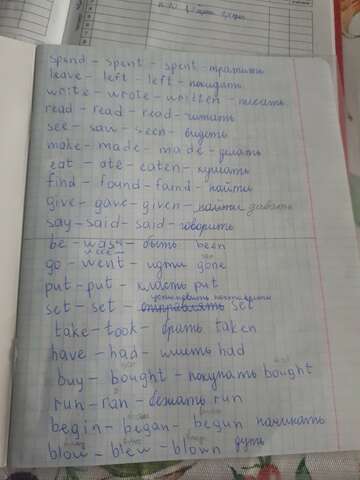 spend - spent - spent - тратить
leave - left - left - покидать
write - wrote - written - писать
read - read - read - читать
see - saw - seen - видеть
make - made - made - делать
eat - ate - eaten - кушать
find - found - found - найти
give - gave - given - давать
say - said - said - говорить
be - was - быть been
were
go - went - идти gone
put - put - класть put
установить
set - set - отправлять set
take - took - брать taken
have - had - иметь had
buy - bought - покупать bought
run - ran - бежать run
begin - began - begun начинать
blow - blew - blown дуть